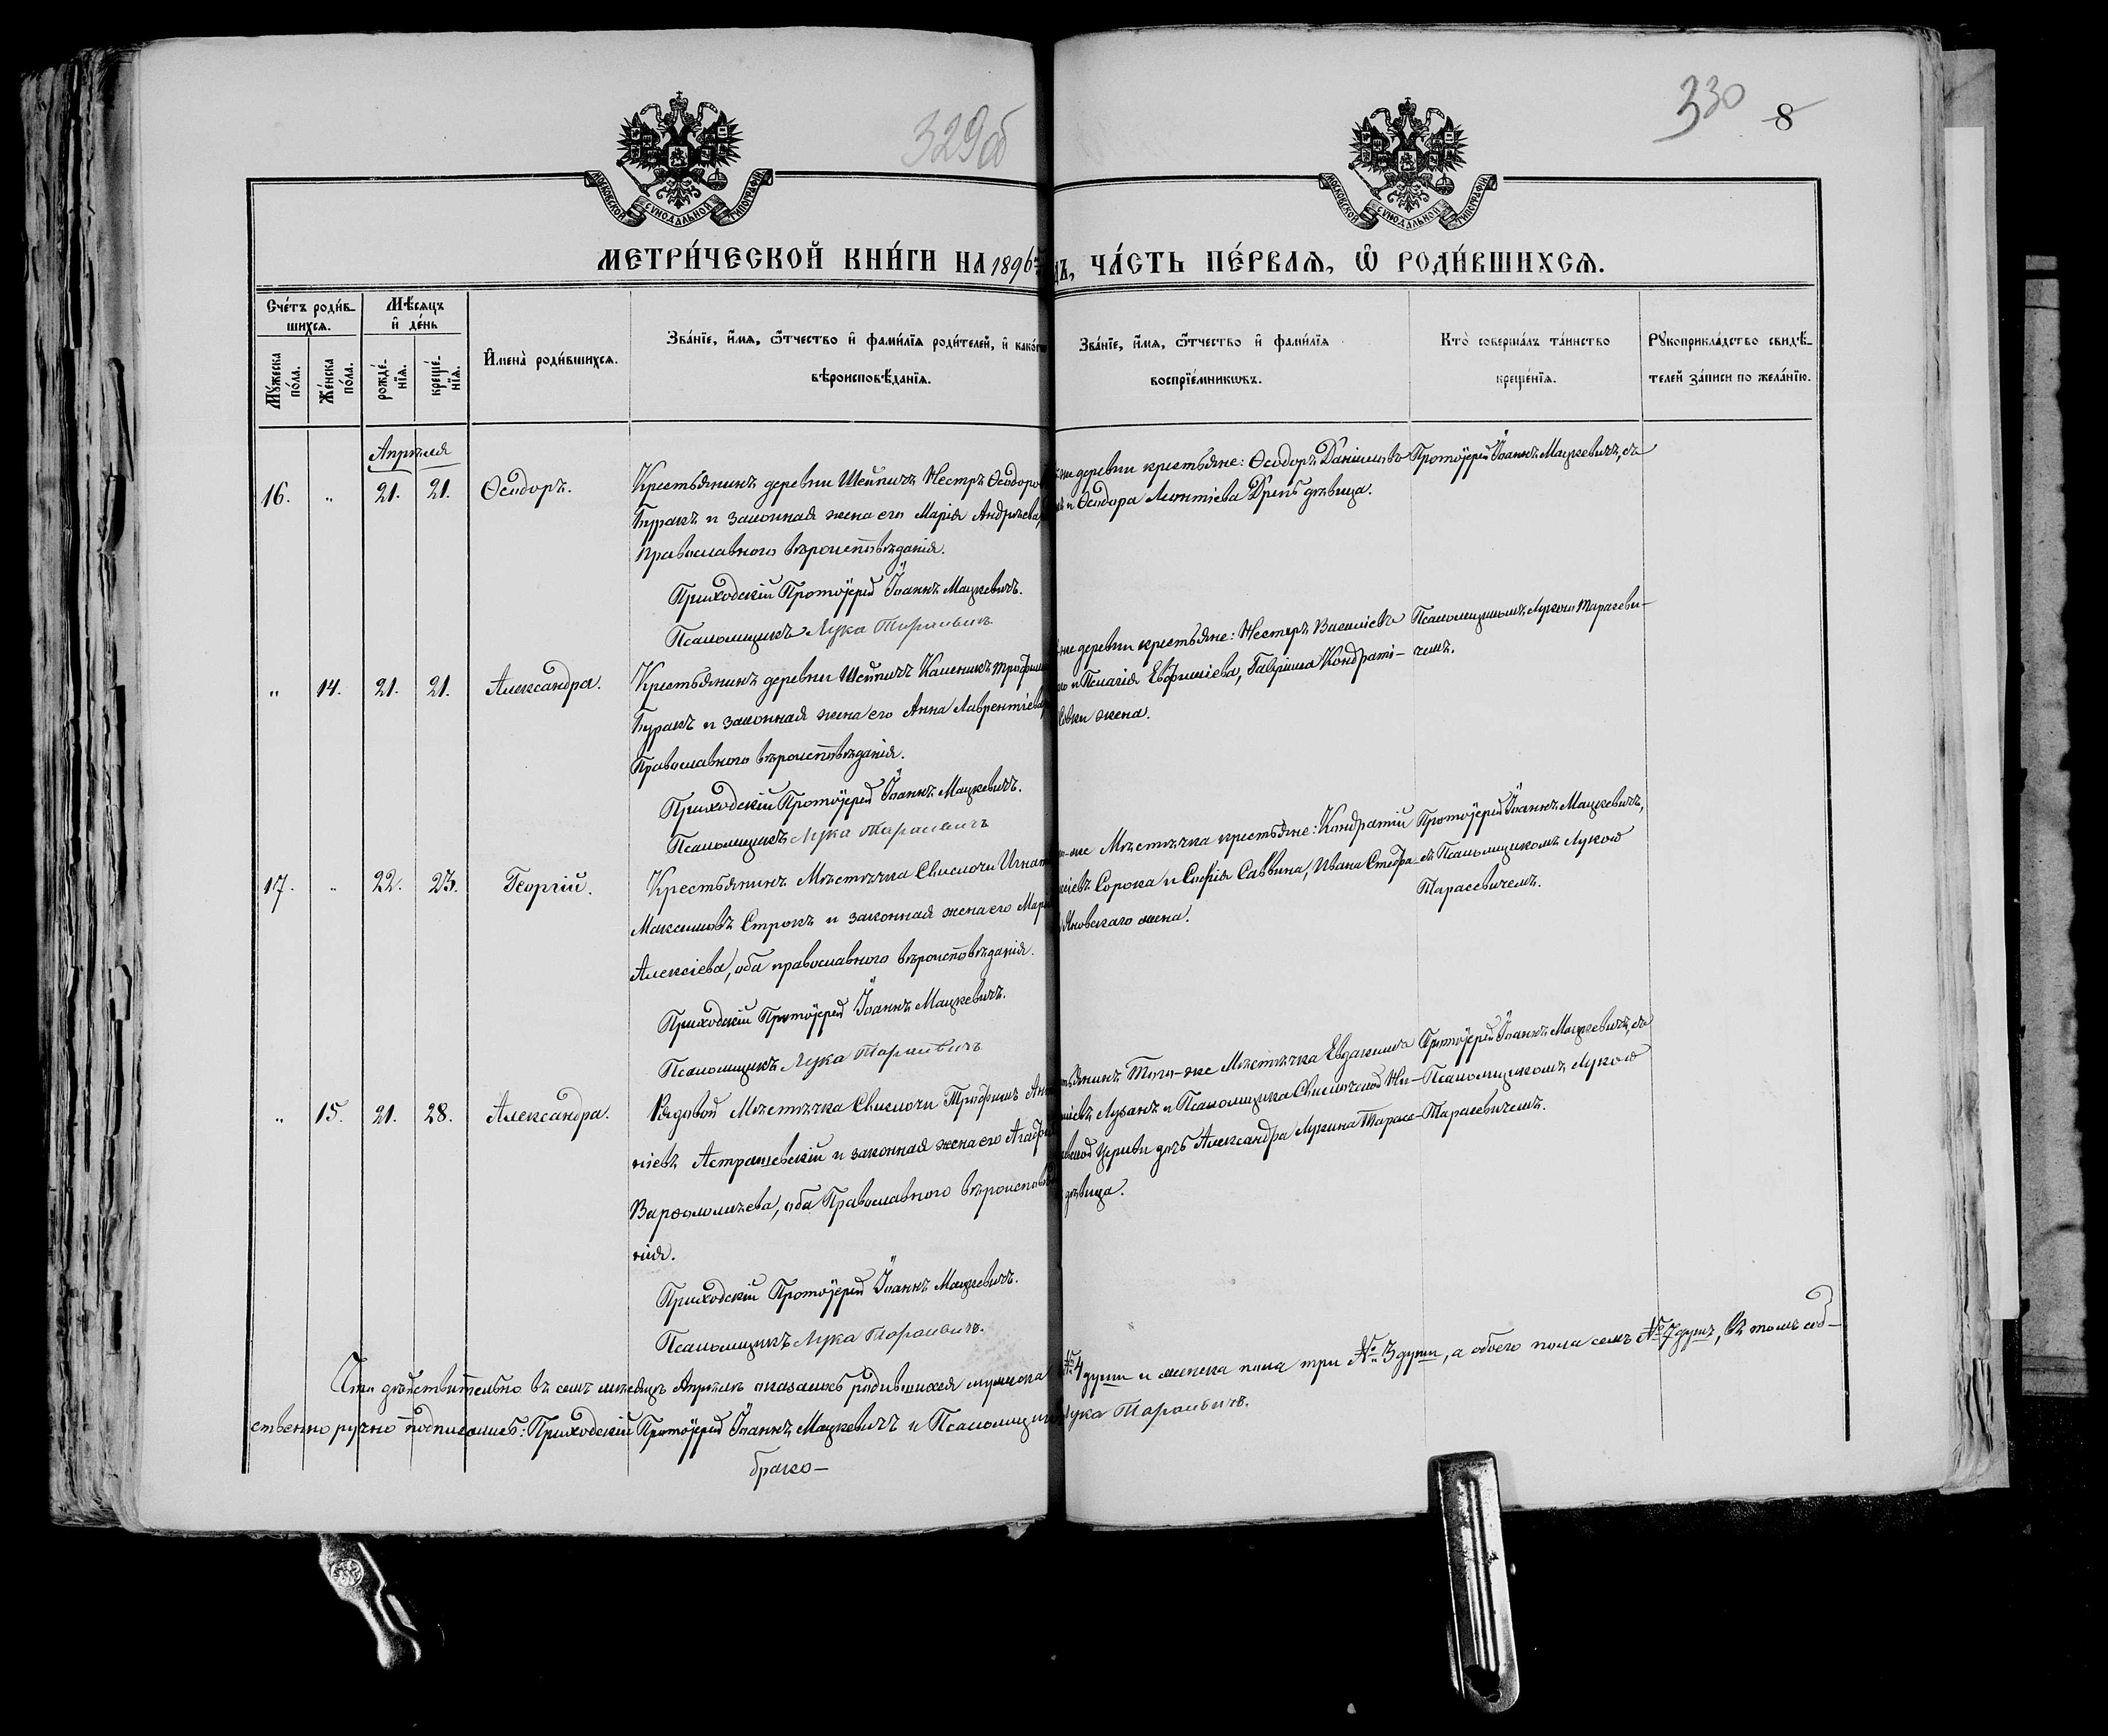 329об
330
8
МОСКОВСКОЙ СѴНОДАЛЬНОЙ ТИПОГРАФІИ
МОСКОВСКОЙ СѴНОДАЛЬНОЙ ТИПОГРАФІИ
МЕТРИ́ЧЕСКОЙ КНИ́ГИ НА 1896 ЧА́СТЬ ПЕ́РВАЯ, Ѡ РОДИ́ВШИХСЯ.
Сче́тъ роди́в-
шихся.
Мѣ́сяцъ
и де́нь
Му́жеска
по́ла.
Же́нска
по́ла.
рожде́-
нїя.
креще́-
нїя.
Имена̀ роди́вшихся.
Зва́нїе, и́мя, ѻ́тчество и фами́лїя роди́телей, и како́гѡ
вѣроисповѣ́данїя.
Зва́нїе, и́мя, ѻ́тчество и фами́лїя
воспрїе́мникѡвъ.
Кто̀ соверша́лъ та́инство
креще́нїя.
Рукоприкла́дство свидѣ́-
телей за́писи по жела́нїю.
Апрѣля
16. „ 21. 21. Ѳеодоръ.
Крестьянинъ деревни Шейпичъ Нестръ Ѳеодоро
Буракъ и законная жена его Марія Андреева,
православного вѣроисповѣданія.
Приходскій Протоіерей Іоаннъ Мацкевичъ.
Псаломщикъ Лука Тарасевичъ
же деревни крестьяне: Ѳеодоръ Даніиловъ
и Ѳеодора Леонтіева дѣвица.
Протоіерей Іоаннъ Мацкевичъ, съ
„ 14. 21. 21. Александра.
Крестьянинъ деревни Шейпичъ Каленикъ Трофимо
Буракъ и законная жена его Анна Лаврентіева,
Православного вѣроисповѣданія.
Приходскій Протоіерей Іоаннъ Мацкевичъ.
Псаломщикъ Лука Тарасевичъ
же деревни крестьяне: Нестеръ Васильевъ
и Пелагія Евфиміева, Гавріила Кондрати-
жена.
Псаломщикомъ Лукою Тарасеви-
чемъ.
17. „ 22. 23. Георгій.
Крестьянинъ Мѣстечка Свислочи Игнат
Максимовъ Строкъ и законная жена его Марі
Алексіева, оба православного вѣроисповѣданія.
Приходскій Протоіерей Іоаннъ Мацкевичъ.
Псаломщикъ Лука Тарасевичъ
же Мѣстечка крестьяне: Кондратій
Сорока и Софія Саввина, Ивана Стефа-
Яновскаго жена.
Протоіерей Іоаннъ Мацкевичъ,
съ Псаломщикомъ Лукою
Тарасевичемъ.
„ 15. 21. 28. Александра.
Рядовой Мѣстечка Свислочи Трофимъ Ант
ніевъ Астрашевскій и законная жена его Агаф
Варѳоломеева, оба Православного вѣроисповѣд
нія.
Приходскій Протоіерей Іоаннъ Мацкевичъ.
Псаломщикъ Лука Тарасевичъ.
Того-же Мѣстечка Евдокимъ
Лузанъ и Псаломщика Свислочской Ни-
церкви дочь Александра Лукина Тарасе-
дѣвица.
Протоіерей Іоаннъ Мацкевичъ, съ
Псаломщикомъ Лукою
Тарасевичемъ.
Что дѣйствительно въ семъ мѣсяцѣ Апрѣлѣ оказалось родившихся мужеска № 4 души и женска пола три № 3 души, а обоего пола семь № 7 душъ, въ томъ соб-
ственно ручно подписались: Приходскій Протоіерей Іоаннъ Мацкевичъ и Псаломщикъ Лука Тарасевичъ.
брако-